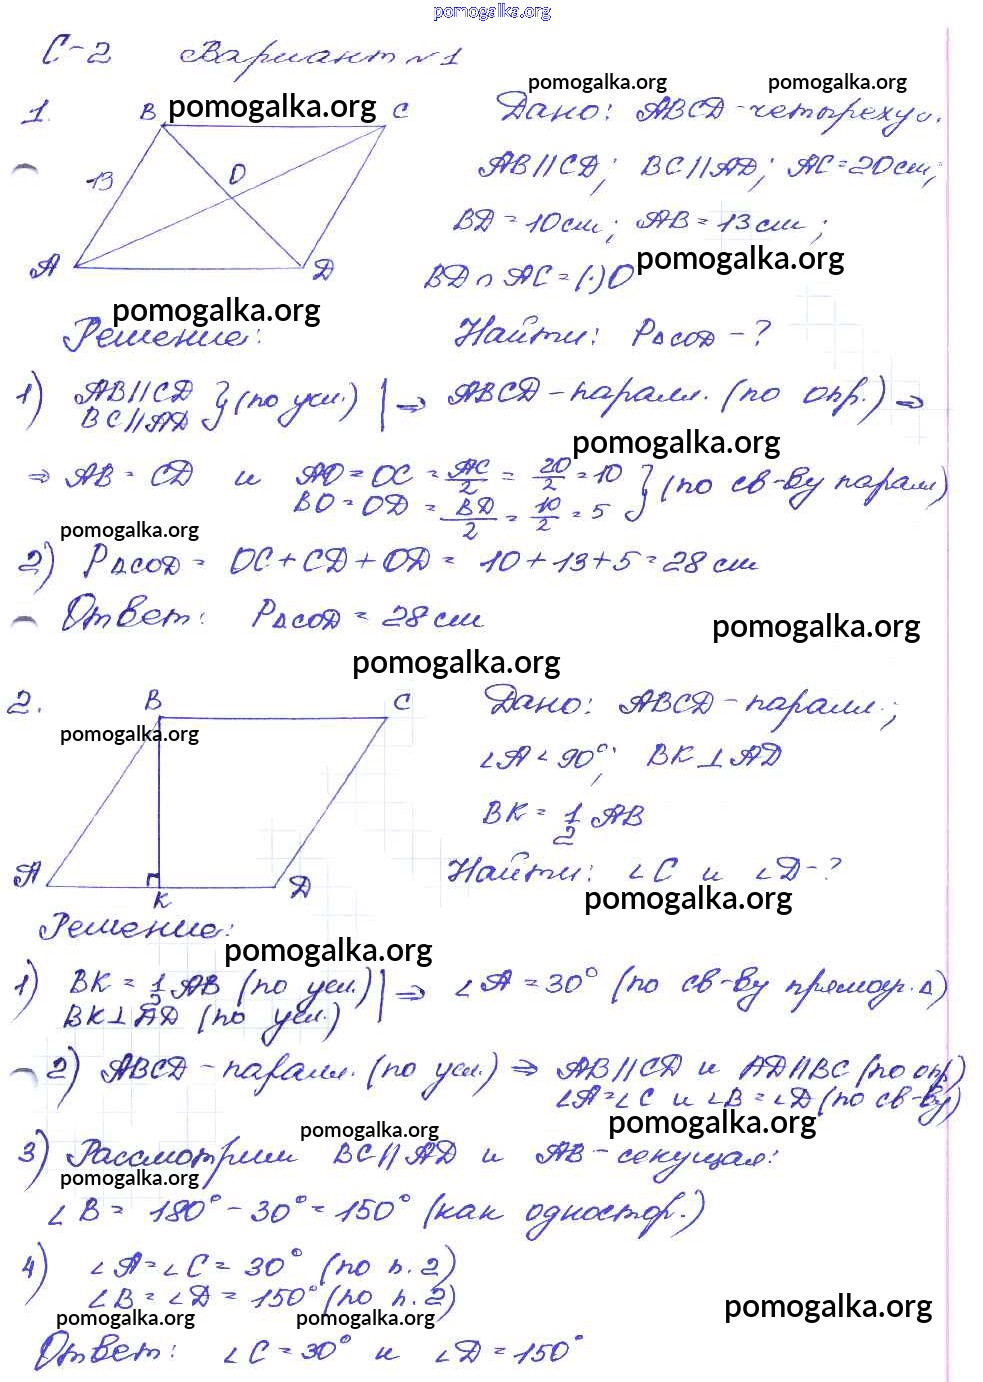 pomogalka.org
С-2 Вариант №1
pomogalka.org pomogalka.org
1. B pomogalka.org C Дано: ABCD-четыреху.
13 O AB||CD; BC||AD; AC=20см;
BD=10см; AB=13см;
A D BD∩AC=(·)O pomogalka.org
pomogalka.org
Решение: Найти: P△COD-?
1) AB||CD
BC||AD } (по усл.) | ⇒ ABCD-паралл. (по опр.) ⇒
pomogalka.org
⇒ AB=CD и AO=OC=AC/2=20/2=10
BO=OD=BD/2=10/2=5 } (по св-ву паралл)
pomogalka.org
2) P△COD= OC+CD+OD= 10+13+5=28см
Ответ: P△COD=28см
pomogalka.org
pomogalka.org
2. B C Дано: ABCD-паралл.;
pomogalka.org
∠A<90°; BK⊥AD
BK=1/2 AB
A K D Найти: ∠C и ∠D-?
pomogalka.org
Решение:
pomogalka.org
1) BK=1/2 AB (по усл.)
BK⊥AD (по усл.) | ⇒ ∠A=30° (по св-ву прямоуг.△)
2) ABCD-паралл. (по усл.) ⇒ AB||CD и AD||BC (по опр)
∠A=∠C и ∠B=∠D (по св-ву)
pomogalka.org pomogalka.org
3) Рассмотрим BC||AD и AB-секущая:
pomogalka.org
∠B= 180°-30°=150° (как одностор.)
4) ∠A=∠C=30° (по п.2)
∠B=∠D=150° (по п.2)
pomogalka.org pomogalka.org pomogalka.org
Ответ: ∠C=30° и ∠D=150°